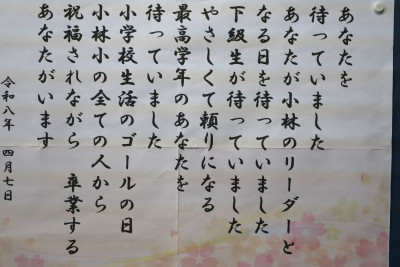 あなたを
待っていました
あなたが小林のリーダーと
なる日を待っていました
下級生が待っていました
やさしくて頼りになる
最高学年のあなたを
待っていました
小学校生活のゴールの日
小林小の全ての人から
祝福されながら　卒業する
あなたがいます
令和八年　四月七日